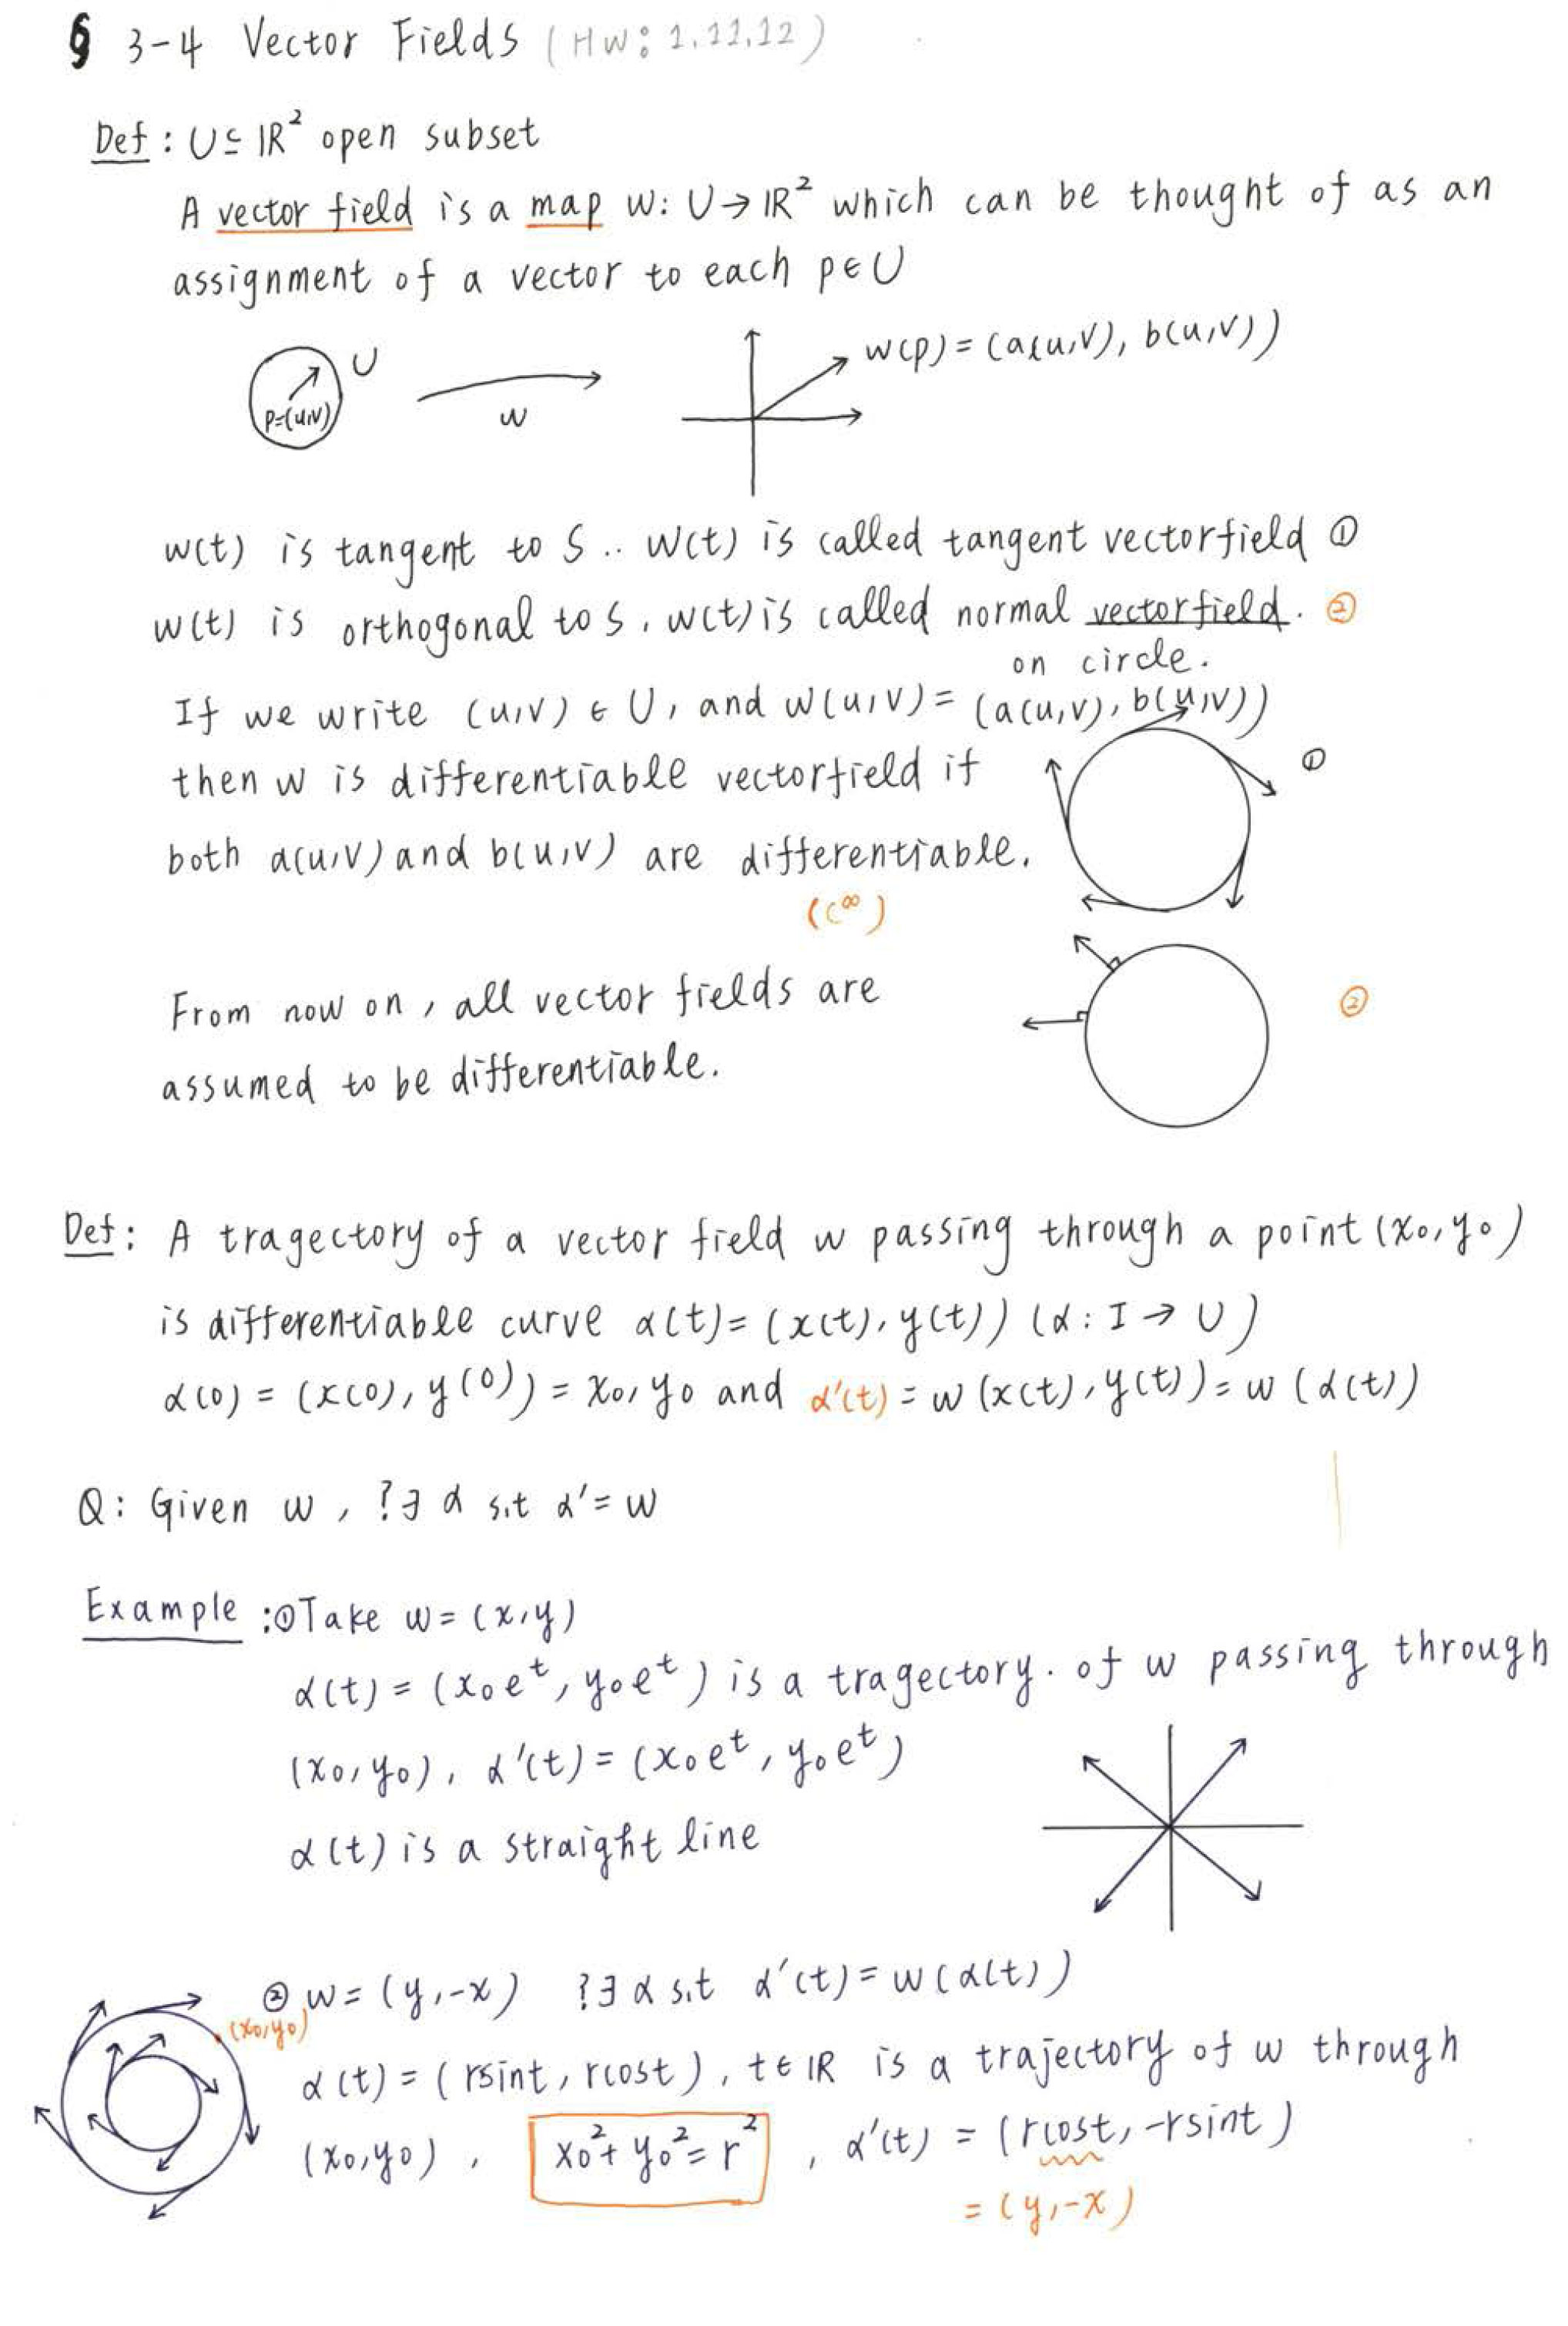 § 3-4 Vector Fields (HW: 1.11.12)
Def: U ⊆ ℝ² open subset
A vector field is a map w: U → ℝ² which can be thought of as an
assignment of a vector to each p ∈ U
U
p=(u,v)
w
w(p) = (a(u,v), b(u,v))
w(t) is tangent to S .. w(t) is called tangent vectorfield ①
w(t) is orthogonal to S, w(t) is called normal vectorfield. ②
on circle.
If we write (u,v) ∈ U, and w(u,v) = (a(u,v), b(u,v))
then w is differentiable vectorfield if
①
both a(u,v) and b(u,v) are differentiable.
(C^∞)
From now on, all vector fields are
②
assumed to be differentiable.
Def: A tragectory of a vector field w passing through a point (x₀,y₀)
is differentiable curve α(t) = (x(t), y(t)) (α: I → U)
α(0) = (x(0), y(0)) = x₀, y₀ and α'(t) = w(x(t), y(t)) = w(α(t))
Q: Given w, ?∃ α s.t α' = w
Example: ① Take w = (x,y)
α(t) = (x₀e^t, y₀e^t) is a tragectory. of w passing through
(x₀,y₀), α'(t) = (x₀e^t, y₀e^t)
α(t) is a straight line
② w = (y,-x) ?∃ α s.t α'(t) = w(α(t))
(x₀,y₀)
α(t) = (rsint, rcost), t ∈ ℝ is a trajectory of w through
(x₀,y₀), x₀² + y₀² = r², α'(t) = (rcost, -rsint)
= (y,-x)